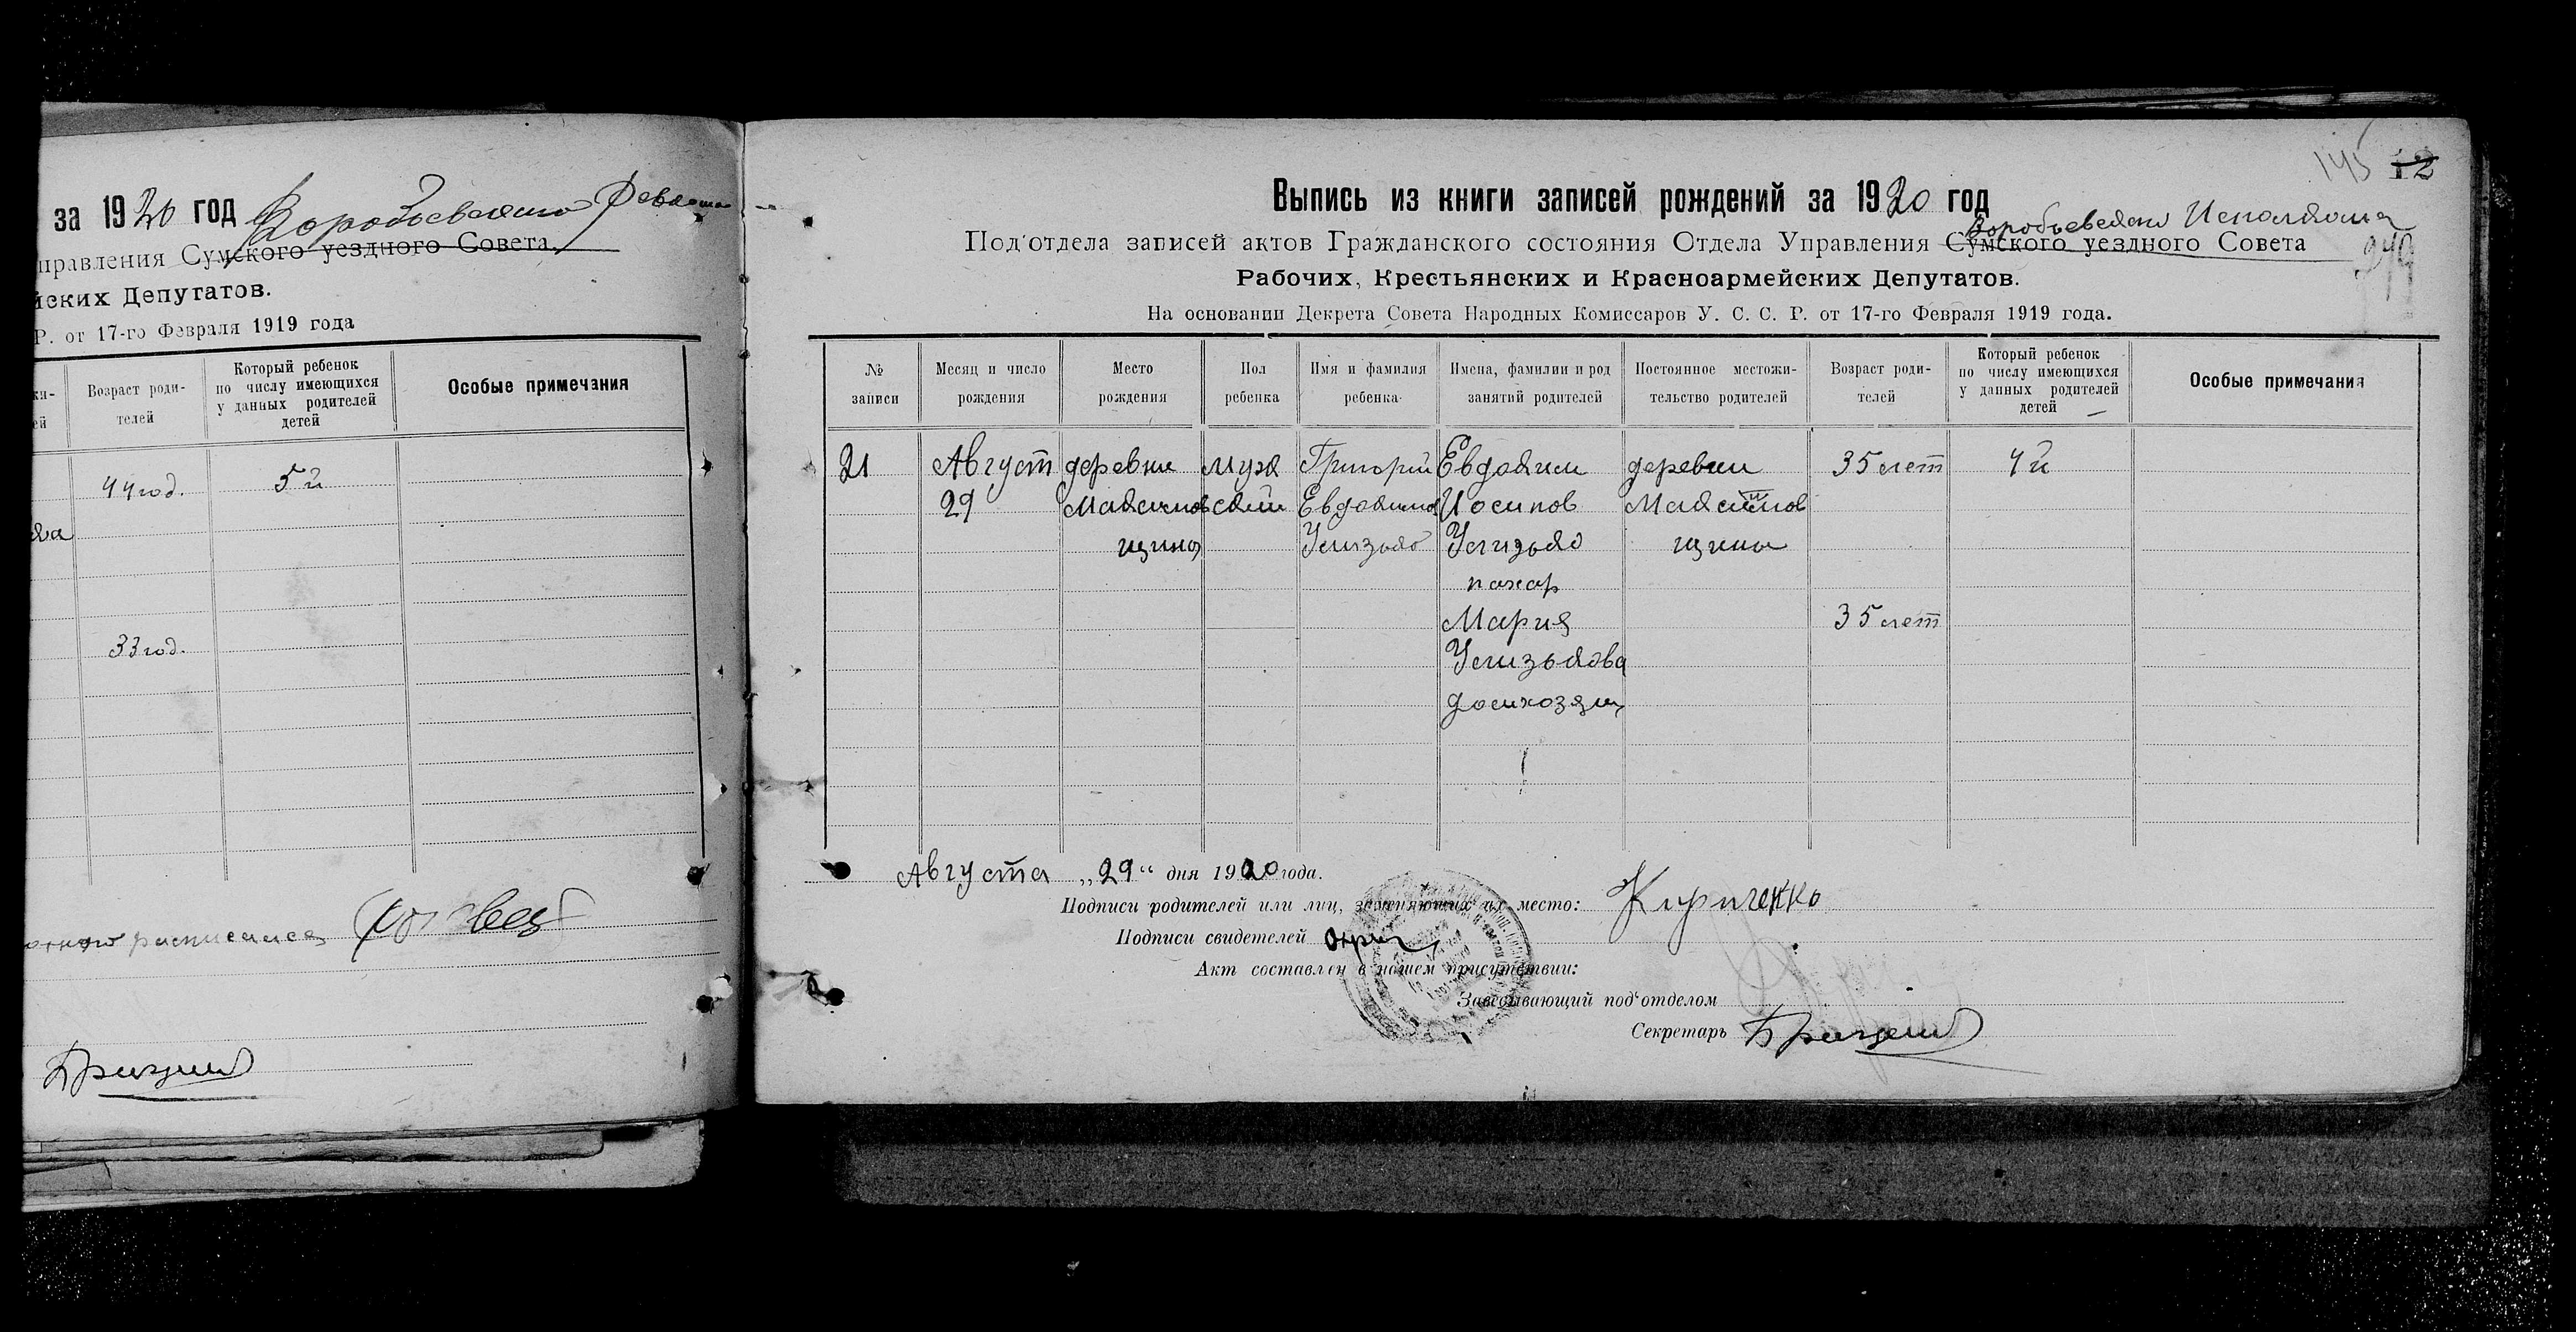 за 1920 год Воробьевского Ревкома
правления Сумского уездного Совета.
йских Депутатов.
Р. от 17-го Февраля 1919 года
Возраст роди-
телей
Который ребенок
по числу имеющихся
у данных родителей
детей
Особые примечания
44 год.
5й
33 год.
145 12
Выпись из книги записей рождений за 1920 год
Воробьевского Исполкома
Под'отдела записей актов Гражданского состояния Отдела Управления Сумского уездного Совета
249
Рабочих, Крестьянских и Красноармейских Депутатов.
На основании Декрета Совета Народных Комиссаров У. С. С. Р. от 17-го Февраля 1919 года.
№
записи
Месяц и число
рождения
Место
рождения
Пол
ребенка
Имя и фамилия
ребенка
Имена, фамилии и род
занятий родителей
Постоянное местожи-
тельство родителей
Возраст роди-
телей
Который ребенок
по числу имеющихся
у данных родителей
детей
Особые примечания
21
Август
29
деревне
Максимов
щина
Муж
ской
Григорий
Евдокимов
Евдоким
Иосипов
пахар
Мария
домхозяй
деревни
Максимов
щина
35 лет
35 лет
4й
Августа „29“ дня 1920 года.
Подписи родителей или лиц, заменяющих их место: Кириченко
Подписи свидетелей
Акт составлен в нашем присутствии:
Заведывающий под'отделом
Секретарь